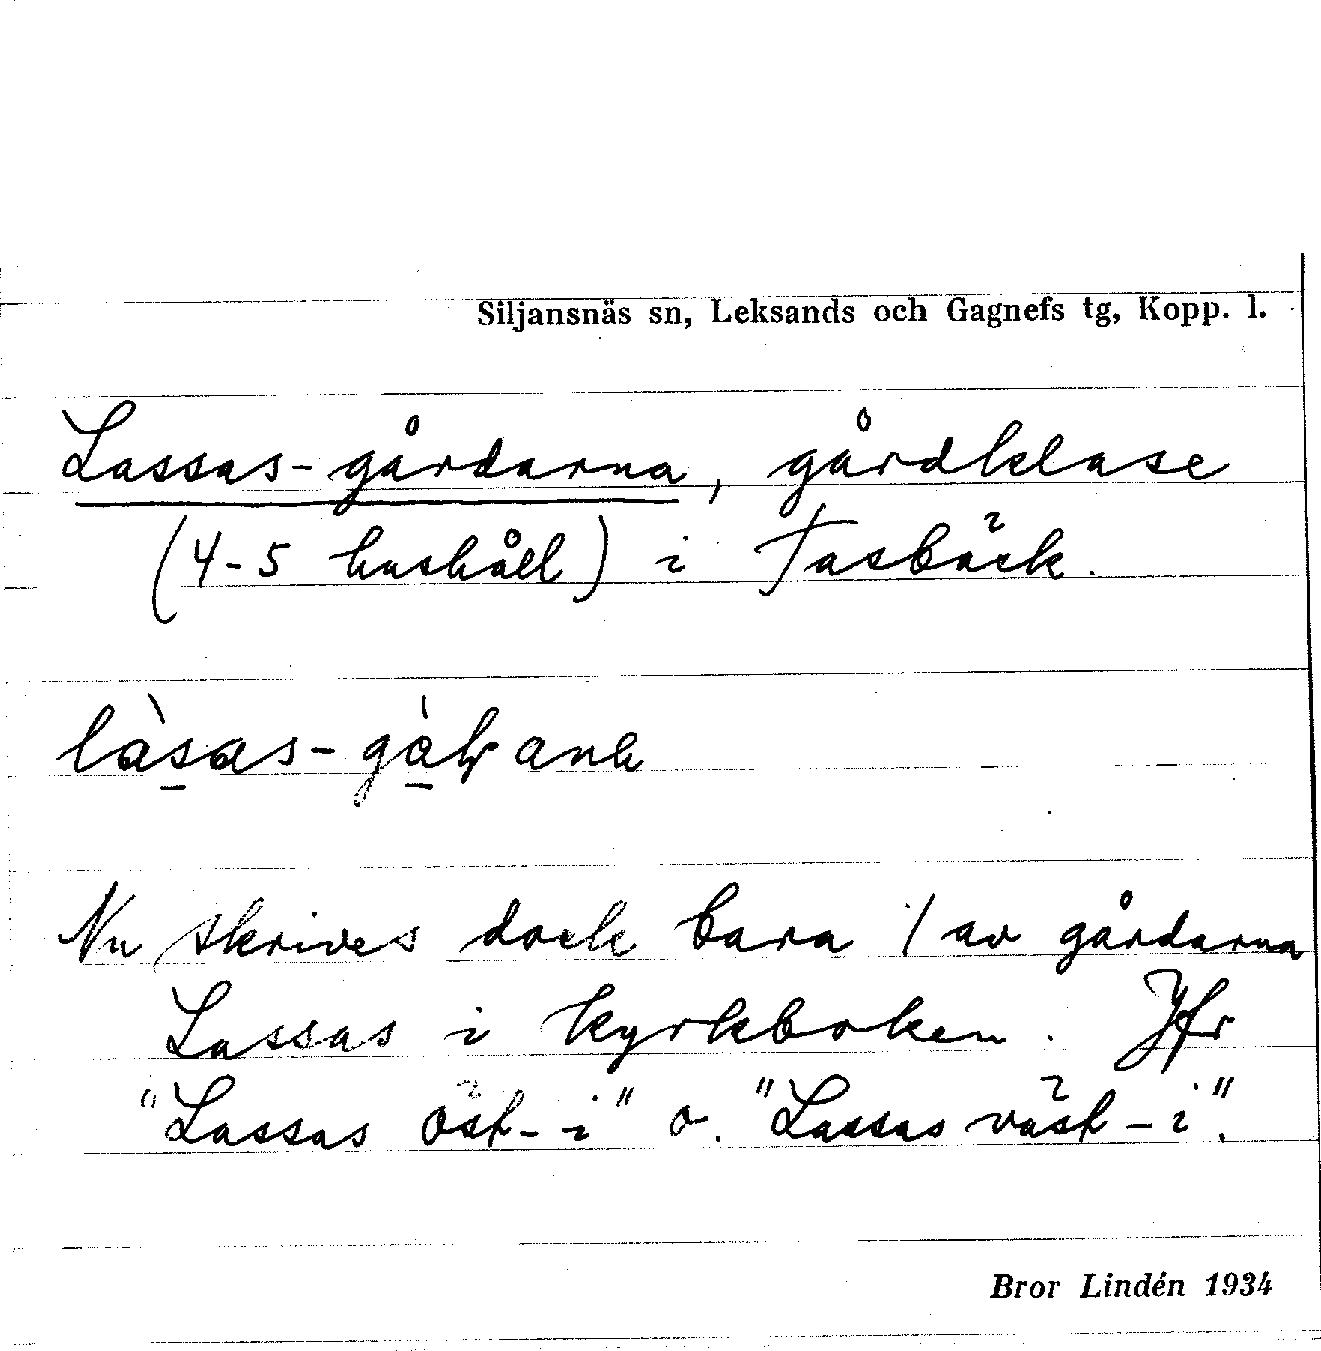 Siljansnäs sn, Leksands och Gagnefs tg, Kopp. l.
Lassas-gårdarna, gårdklase
(4-5 hushåll) i Tasbäck.
làsas-
Nu skrives dock bara 1 av gårdarna
Lassas i kyrkboken. Jfr
"Lassas öst-i" o. "Lassas väst-i".
Bror Lindén 1934